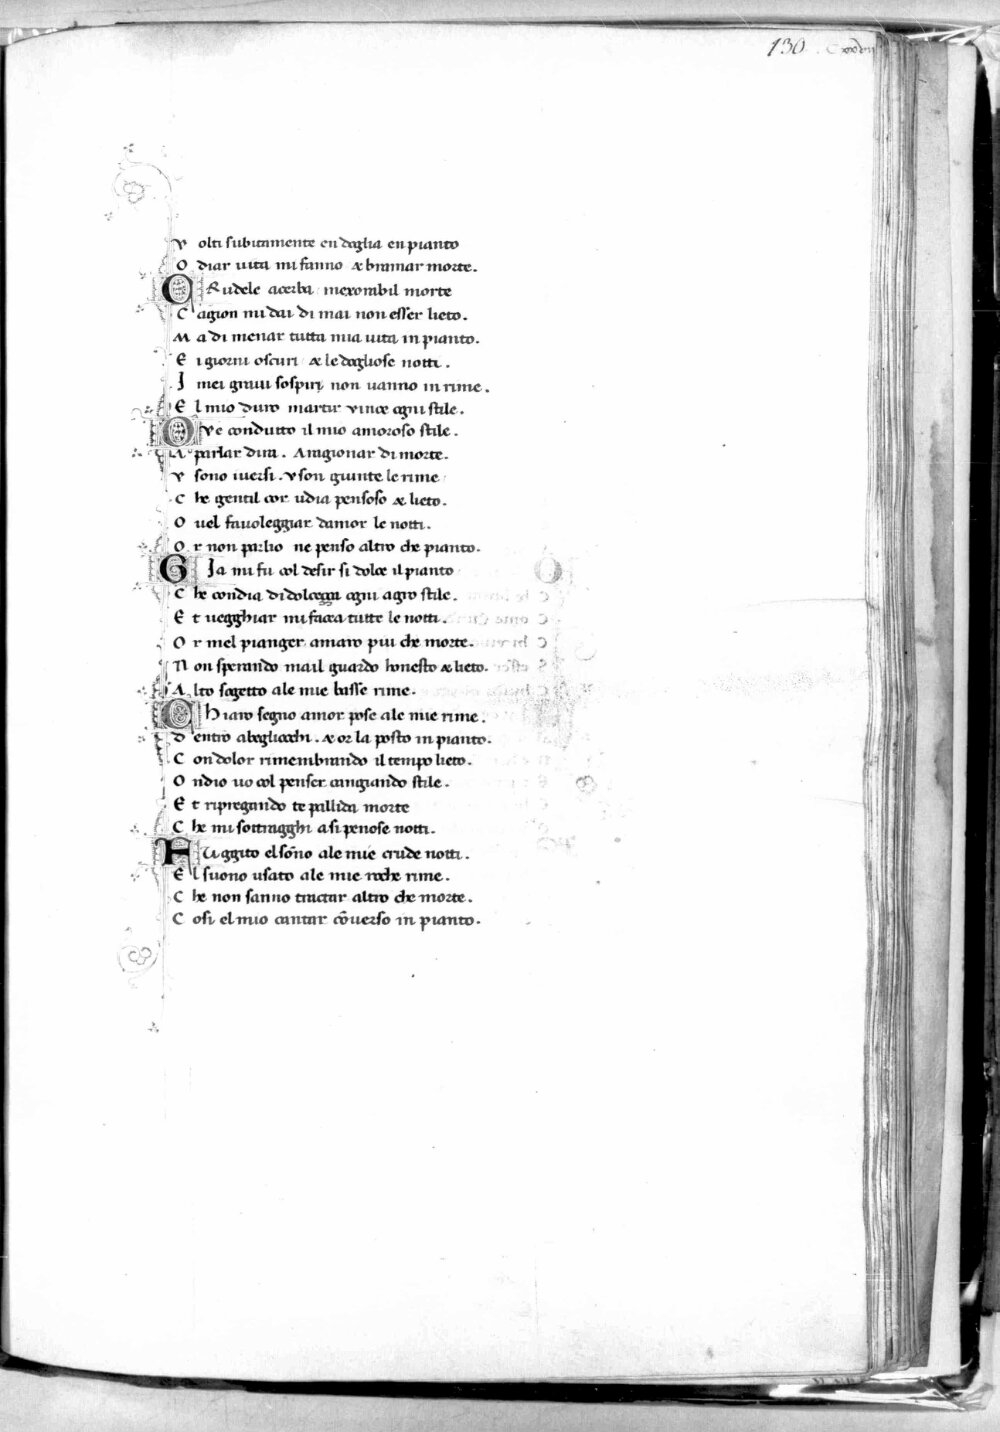 130 .
V olti subitamente en doglia en pianto
O diar uita mi fanno & bramar morte.
C Rudele acerba inexorabil morte
C agion mi dai di mai non esser lieto.
M a di menar tutta mia uita in pianto.
E i giorni oscuri & le dogliose notti.
I mei graui sospiri non uanno in rime.
E l mio duro martir vince ogni stile.
O Ve condutto il mio amoroso stile.
A parlar dira. A ragionar di morte.
V sono iuersi. V son giunte le rime
C he gentil cor udia pensoso & lieto.
O uel fauoleggiar damor le notti.
O r non parlio ne penso altro che pianto.
G Ia mi fu col desir si dolce il pianto
C he condia di dolceçça ogni agro stile.
E t uegghiar mi facea tutte le notti.
O r mel pianger amaro piu che morte.
N on sperando mai il guardo honesto & lieto.
A lto sogetto ale mie basse rime.
C Hiaro segno amor pose ale mie rime.
D entro abegliocchi. & or la posto in pianto.
C on dolor rimembrando il tempo lieto.
O ndio uo col penser cangiando stile.
E t ripregando te pallida morte
C he mi sottragghi a si penose notti.
F Uggito el sõno ale mie crude notti.
E l suono usato ale mie roche rime.
C he non sanno tractar altro che morte.
C osi el mio cantar cõuerso in pianto.